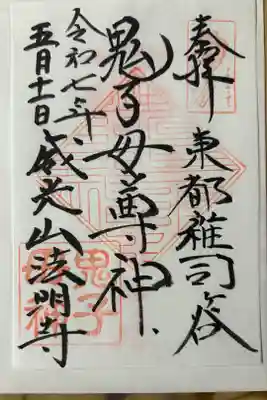 奉拝 東都雑司ヶ谷
鬼子母尊神
令和七年
五月十一日 威光山法明寺
鬼子
母神